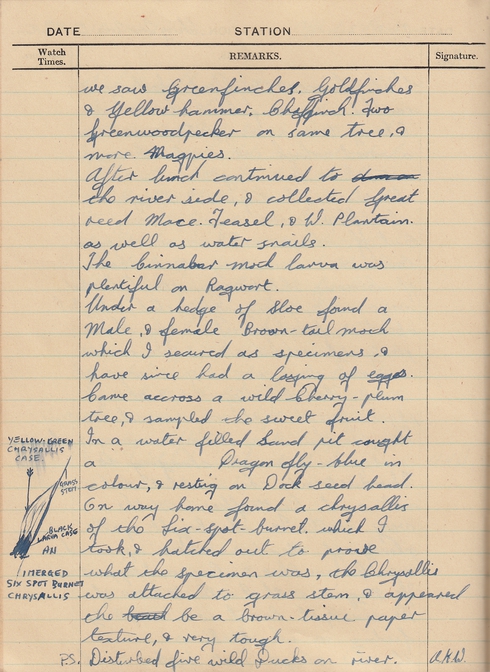 DATE STATION
Watch Times. REMARKS. Signature.
we saw Greenfinches. Goldfinches
& Yellow hammer. Chaffinch. Two
Greenwoodpecker on same tree, &
more. Magpies.
After lunch continued to
the river side, & collected Great
reed Mace. Teasel, & W. Plantain.
as well as water snails.
The Cinnabar moth larva was
plentiful on Ragwort.
Under a hedge of Sloe found a
Male, & female Brown-tail moth
which I secured as specimens, &
have since had a laying of eggs.
Came accross a wild Cherry-plum
tree, & sampled the sweet fruit.
In a water filled Sand pit caught
a Dragon fly-blue in
colour, & resting on Dock seed head.
On way home found a chrysallis
of the Six-spot-burnet. which I
took, & hatched out to prove
what the specimen was, the Chrysallis
was attached to grass stem, & appeared
the be a brown-tissue paper
texture, & very tough.
P.S. Disturbed five wild Ducks on river. A.K.W.
YELLOW-GREEN
CHRYSALLIS
CASE.
GRASS
STEM
BLACK
LARVA CASE
AN
IMERGED
SIX SPOT BURNET
CHRYSALLIS